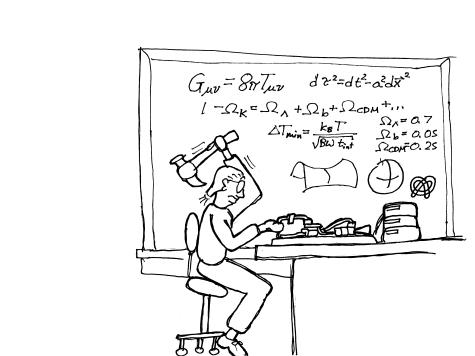 Gμν = 8πTμν   dτ² = dt² - a²dx⃗²
1 - ΩK = ΩΛ + Ωb + ΩCDM + ...
ΔTmin = kBT / √BW tint
ΩΛ = 0.7
Ωb = 0.05
ΩCDM = 0.25